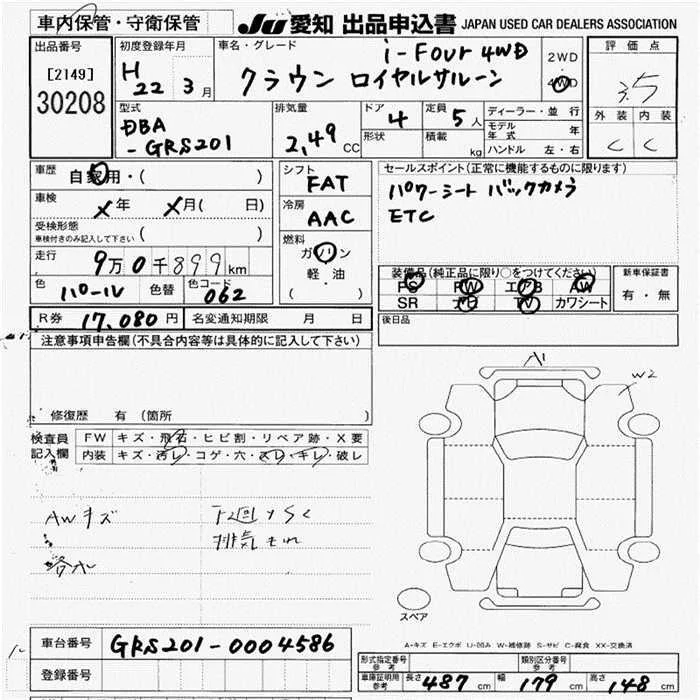 車内保管・守衛保管
JU 愛知 出品申込書 JAPAN USED CAR DEALERS ASSOCIATION
出品番号
[2149]
30208
初度登録年月
H22 3月
車名・グレード
i-Four 4WD
クラウン ロイヤルサルーン
2WD
4WD
評価点
3.5
外装 内装
C C
型式
DBA
-GRS201
排気量
2,49 CC
ドア 4
形状
定員 5人
積載 kg
ディーラー・並行
モデル年式 年
ハンドル 左・右
車歴
自家用・( )
車検 メ年 メ月( 日)
受検形態
車検付きのみ記入して下さい ( )
走行 9万0千899km
色 パール 色替 色コード 062
シフト
FAT
冷房
AAC
燃料
ガソリン
軽・油
( )
セールスポイント(正常に機能するものに限ります)
パワーシート バックカメラ
ETC
装備品(純正品に限り○をつけてください)
PS PW エアB AW
SR ナビ TV カワシート
新車保証書
有・無
R券 17,080円 名変通知期限 月 日
後日品
注意事項申告欄(不具合内容等は具体的に記入して下さい)
修復歴 有 (箇所 )
検査員記入欄
FW キズ・飛石・ヒビ割・リペア跡・X要
内装 キズ・汚レ・コゲ・穴・スレ・キレ・破レ
AWキズ
下2回
排気もれ
A1
W2
スペア
A-キズ E-エクボ U-凹み W-補修跡 S-サビ C-腐食 XX-交換済
車台番号 GRS201-0004586
登録番号
形式指定番号 参考
類別区分番号 参考
車庫証明用 参考 長さ 487 cm 幅 179 cm 高さ 148 cm